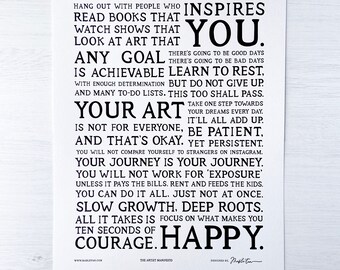 HANG OUT WITH PEOPLE WHO
READ BOOKS THAT
WATCH SHOWS THAT
LOOK AT ART THAT
INSPIRES
YOU.
ANY GOAL
IS ACHIEVABLE
WITH ENOUGH DETERMINATION
AND MANY TO-DO LISTS.
THERE'S GOING TO BE GOOD DAYS
THERE'S GOING TO BE BAD DAYS
LEARN TO REST,
BUT DO NOT GIVE UP.
THIS TOO SHALL PASS.
YOUR ART
IS NOT FOR EVERYONE,
AND THAT'S OKAY.
TAKE ONE STEP TOWARDS
YOUR DREAMS EVERY DAY.
IT'LL ALL ADD UP.
BE PATIENT,
YET PERSISTENT.
YOU WILL NOT COMPARE YOURSELF TO STRANGERS ON INSTAGRAM.
YOUR JOURNEY IS YOUR JOURNEY.
YOU WILL NOT WORK FOR 'EXPOSURE'
UNLESS IT PAYS THE BILLS, RENT AND FEEDS THE KIDS.
YOU CAN DO IT ALL. JUST NOT AT ONCE.
SLOW GROWTH, DEEP ROOTS.
ALL IT TAKES IS
TEN SECONDS OF
COURAGE.
FOCUS ON WHAT MAKES YOU
HAPPY.
THE ARTIST MANIFESTO